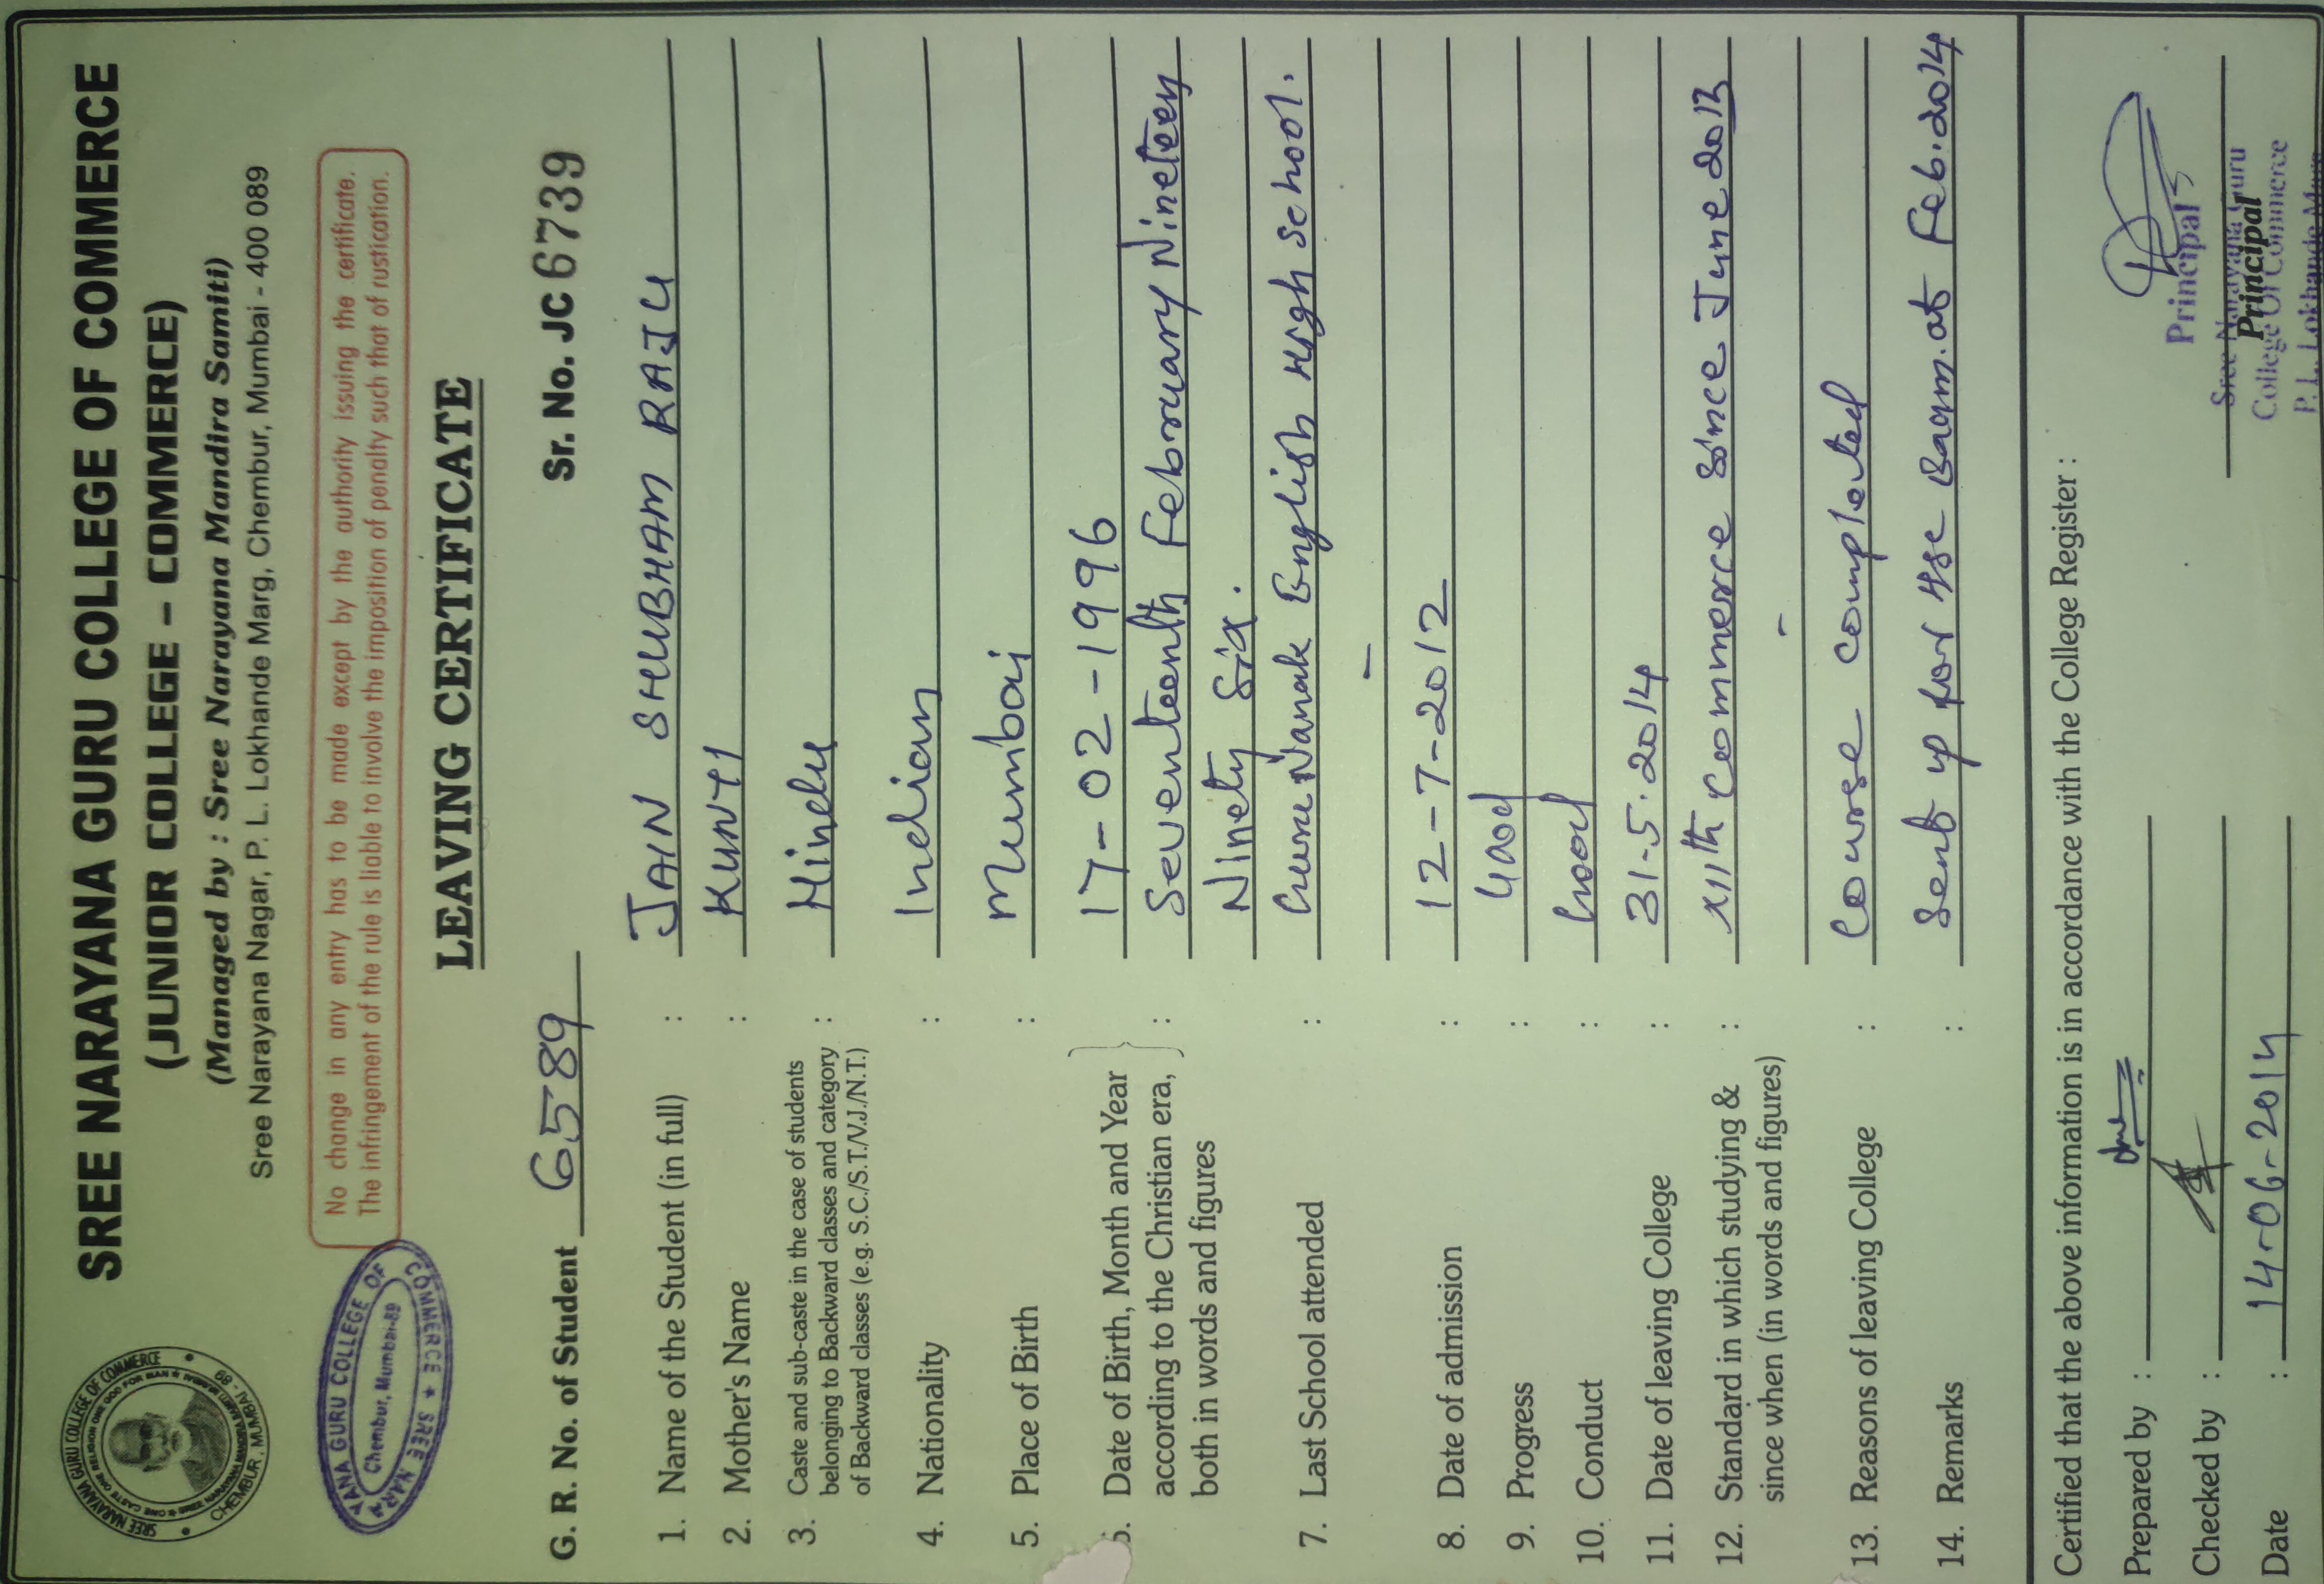 SREE NARAYANA GURU COLLEGE OF COMMERCE
(JUNIOR COLLEGE – COMMERCE)
(Managed by : Sree Narayana Mandira Samiti)
Sree Narayana Nagar, P. L. Lokhande Marg, Chembur, Mumbai - 400 089
SREE NARAYANA GURU COLLEGE OF COMMERCE
CHEMBUR, MUMBAI - 89
No change in any entry has to be made except by the authority issuing the certificate.
The infringement of the rule is liable to involve the imposition of penalty such that of rustication.
YANA GURU COLLEGE OF COMMERCE ★ SREE NARA
Chembur, Mumbai-89
LEAVING CERTIFICATE
G. R. No. of Student 6589 Sr. No. JC 6739
1. Name of the Student (in full) : JAIN SHUBHAM RAJU
2. Mother's Name : KUNTI
3. Caste and sub-caste in the case of students : Hindu
belonging to Backward classes and category
of Backward classes (e.g. S.C./S.T./V.J./N.T.)
4. Nationality : Indian
5. Place of Birth : Mumbai
6. Date of Birth, Month and Year 17-02-1996
according to the Christian era, : Seventeenth Februuary Nineteen
both in words and figures Ninety Six.
7. Last School attended : Guru Nanak English High School.
-
8. Date of admission : 12-7-2012
9. Progress : Good
10. Conduct : Good
11. Date of leaving College : 31-5-2014
12. Standard in which studying & : XIIth Commerce Since June 2013
since when (in words and figures) -
13. Reasons of leaving College : Course Completed
14. Remarks : Sent up for HSC Exam. at Feb. 2014
Certified that the above information is in accordance with the College Register :
Prepared by :
Checked by :
Date : 14-06-2014
Principal
Sree Narayana Guru
Principal
College Of Commerce
P. L. Lokhande Marg